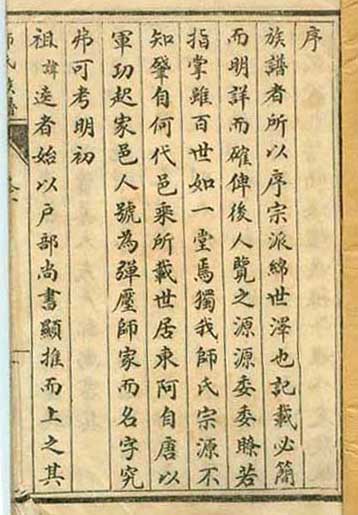 序
族譜者所以序宗派綿世澤也記載必簡
而明詳而確俾後人覽之源源委委瞭若
指掌雖百世如一堂焉獨我師氏宗源不
知肇自何代邑乘所載世居東阿自唐以
軍功起家邑人號為彈壓師家而名字究
弗可考明初
祖諱逵者始以戶部尚書顯推而上之其
師氏族譜